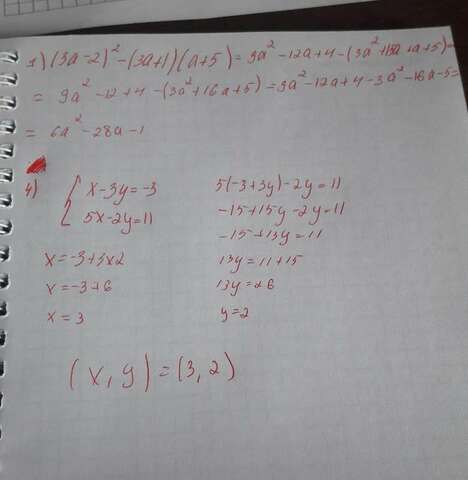 1) (3a-2)² - (3a+1)(a+5) = 9a² - 12a + 4 - (3a² + 15a + a + 5) =
= 9a² - 12 + 4 - (3a² + 16a + 5) = 9a² - 12a + 4 - 3a² - 16a - 5 =
= 6a² - 28a - 1
4) { x - 3y = -3
5x - 2y = 11
x = -3 + 3x2
x = -3 + 6
x = 3
5(-3+3y) - 2y = 11
-15 + 15y - 2y = 11
-15 + 13y = 11
13y = 11 + 15
13y = 26
y = 2
(x, y) = (3, 2)